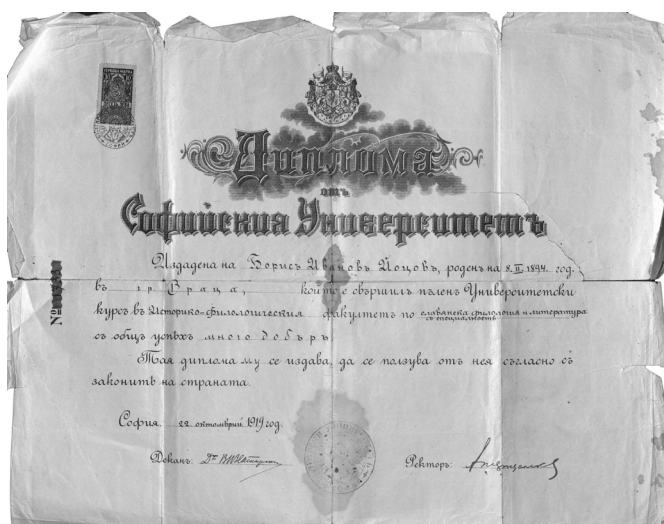 Диплома
отъ
Софийския Университетъ
Издадена на Борисъ Ивановъ Йоцовъ, роденъ на 8. II. 1894. год.
въ гр. Враца, който е свършилъ пъленъ Университетски
курсъ въ Историко-филологическия факултетъ по славянска филология и литература
съ специалность
съ общъ успѣхъ много добъръ.
Тая диплома му се издава, да се ползува отъ нея съгласно съ
законитѣ на страната.
София, 22 октомврий 1919 год.
Деканъ: Дръ
Ректоръ:
№